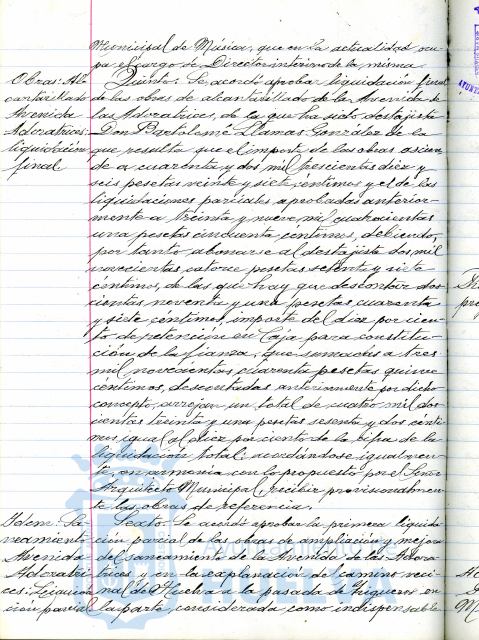 Municipal de Música, que en la actualidad ocu-
pa el cargo de Director interino de la misma.
Obras: Al-
cantarillado
Avenida
Adoratrices:
liquidación
final.
Quinto: Se acordó aprobar liquidación final
de las obras de alcantarillado de la Avenida de
las Adoratrices, de la que ha sido destajista
Don Bartolomé Llamas González de la
que resulta que el importe de las obras ascien-
de a cuarenta y dos mil trescientas diez y
seis pesetas veinte y siete céntimos y el de las
liquidaciones parciales aprobadas anterior-
mente a treinta y nueve mil cuatrocientas
una pesetas cincuenta céntimos, debiendo,
por tanto abonarse al destajista dos mil
novecientas catorce pesetas setenta y siete
céntimos, de las que hay que descontar dos-
cientas noventa y una pesetas cuarenta
y siete céntimos, importe del diez por cien-
to de retención en Caja para constitu-
ción de la fianza, que sumadas a tres
mil novecientas cuarenta pesetas quince
céntimos, descontadas anteriormente por dicho
concepto, arrojan un total de cuatro mil dos-
cientas treinta y una pesetas sesenta y dos cénti-
mos igual al diez por ciento de la cifra de la
liquidación total: acordándose igualmen-
te, en armonía con lo propuesto por el Señor
Arquitecto Municipal, recibir provisionalmen-
te las obras de referencia.
Idem: Sa-
neamiento
Avenida
Adoratri-
ces: Liquida-
ción parcial
Sexto: Se acordó aprobar la primera liquida-
ción parcial de las obras de ampliación y mejora
del saneamiento de la Avenida de las Adora-
trices y en la explanación del camino veci-
nal de Huelva a la pasada de Higueros en
la parte, considerada como indispensable
HUELVA